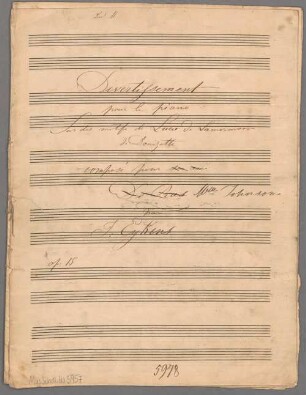 Divertissement
pour le piano
Sur des motifs de Lucie de Lammermoor
de Donizetti
composé pour
Mlle Johnson
par
J. Eykens
op 15
5978